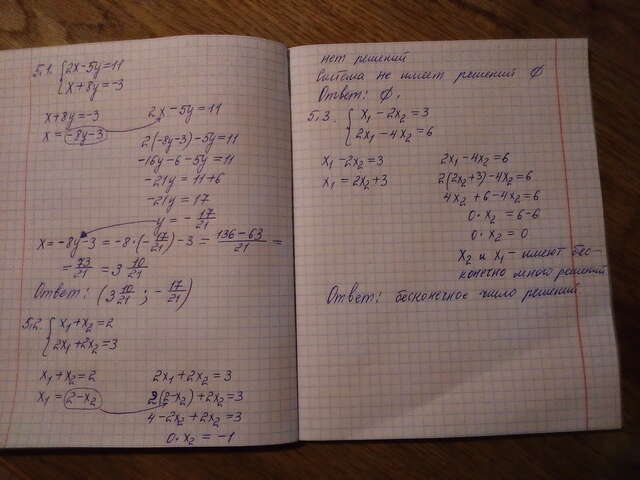 5.1. { 2x-5y=11
x+8y=-3
x+8y=-3 2x-5y=11
x=-8y-3 2(-8y-3)-5y=11
-16y-6-5y=11
-21y=11+6
-21y=17
y=-17/21
x=-8y-3=-8·(-17/21)-3=(136-63)/21=
=73/21=3 10/21
Ответ: (3 10/21; -17/21)
5.2. { x₁+x₂=2
2x₁+2x₂=3
x₁+x₂=2 2x₁+2x₂=3
x₁=2-x₂ 2(2-x₂)+2x₂=3
4-2x₂+2x₂=3
0·x₂=-1
нет решений
Система не имеет решений ∅
Ответ: ∅.
5.3. { x₁-2x₂=3
2x₁-4x₂=6
x₁-2x₂=3 2x₁-4x₂=6
x₁=2x₂+3 2(2x₂+3)-4x₂=6
4x₂+6-4x₂=6
0·x₂=6-6
0·x₂=0
x₂ и x₁- имеют бес-
конечно много решений
Ответ: бесконечное число решений